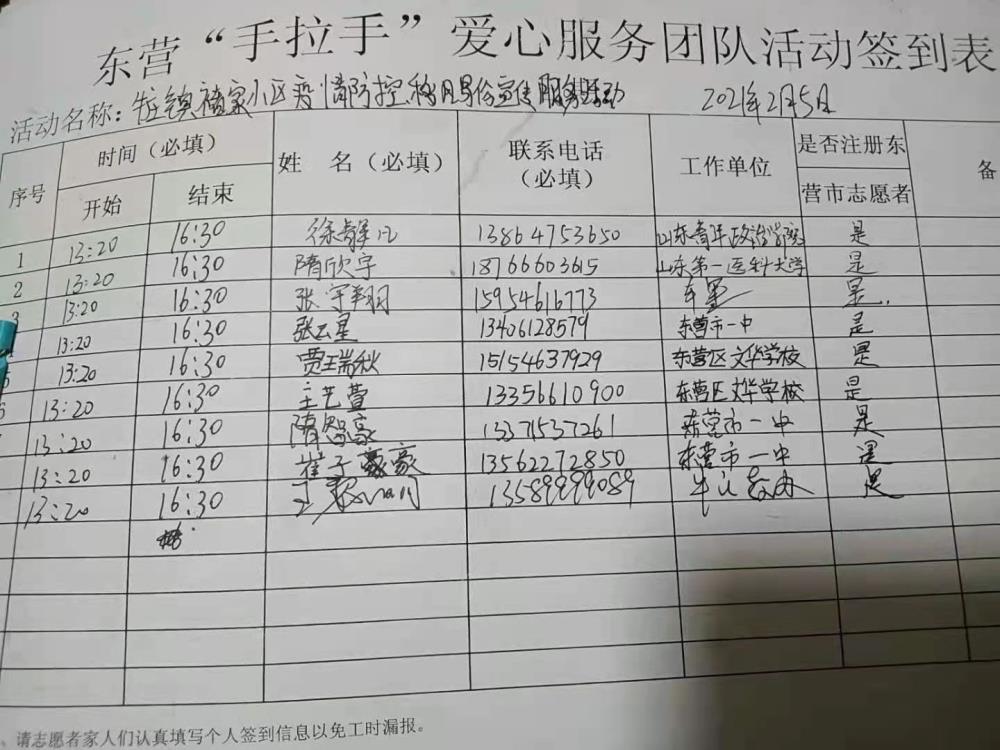 东营“手拉手”爱心服务团队活动签到表
活动名称：镇 小区疫情防控 宣传服务活动 2021年2月5日
序号 时间（必填） 姓 名（必填） 联系电话（必填） 工作单位 是否注册东营市志愿者 备
开始 结束
1 13:20 16:30 徐静 13864753650 山东青年政治学院 是
2 13:20 16:30 隋欣宇 18766603615 山东第一医科大学 是
3 13:20 16:30 张宇翔 15954616773 是
13:20 16:30 张云星 13406128579 东营市一中 是
13:20 16:30 贾玉瑞秋 15154637929 东营区文华学校 是
13:20 16:30 王艺萱 13356610900 东营区文华学校 是
13:20 16:30 隋智豪 13371537261 东营市一中 是
13:20 16:30 崔子豪 13562272850 东营市一中 是
13:20 16:30 13589999089 是
请志愿者家人们认真填写个人签到信息以免工时漏报。